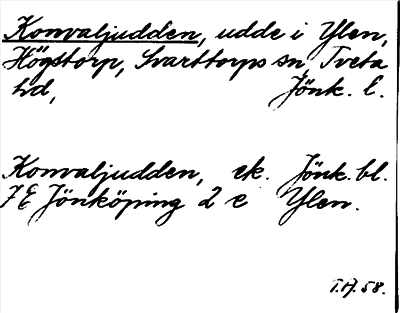 Konvaljudden, udde i Ylen,
Högstorp, Svarttorps sn, Tveta
hd, Jönk. l.
Konvaljudden, ek. Jönk. bl.
7E Jönköping 2 e Ylen.
T.A. 58.